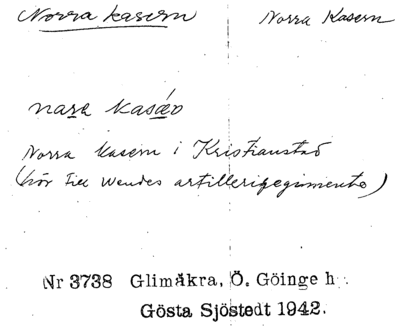 Norra kasern Norra Kasern
Norra kasern i Kristianstad
(hör till Wendes artilleriregimente)
Nr 3738 Glimåkra, Ö. Göinge h.
Gösta Sjöstedt 1942.